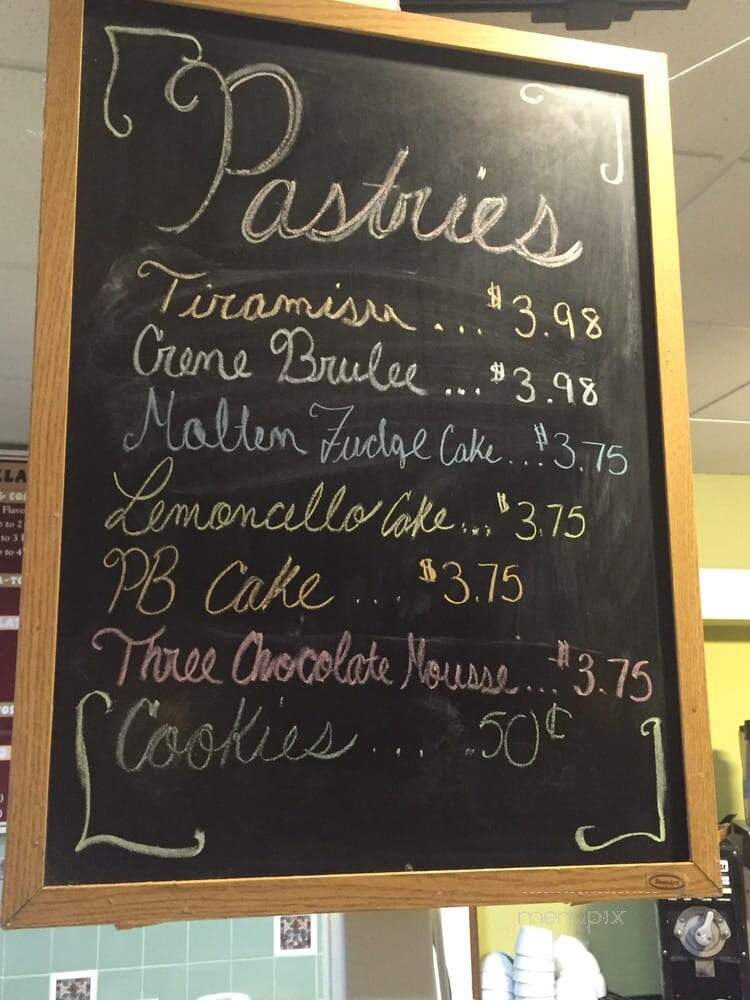 Pastries
Tiramisu ... $3.98
Creme Brulee ... $3.98
Molten Fudge Cake ... $3.75
Lemoncello Cake ... $3.75
PB Cake ... $3.75
Three Chocolate Mousse ... $3.75
Cookies .... .50¢
menupix